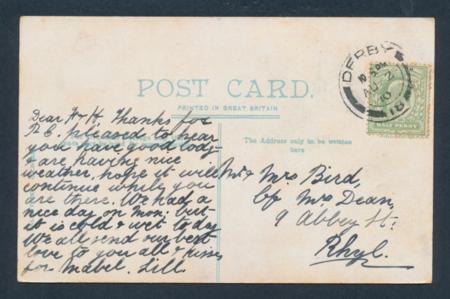 POST CARD.
PRINTED IN GREAT BRITAIN
The Address only to be written
here
DERBY
AU 2
10
HALF PENNY
Dear F & H, Thanks for
P.C. pleased to hear
you have good lodg-
& are having nice
weather, hope it will
continue while you
are there. We had a
nice day on Mon; but
it is cold & wet to day
We all send our best
love to you all & kisses
for Mabel. Lill
Mr & Mrs Bird,
c/o Mrs Dean,
9 Abbey St.
Rhyl.